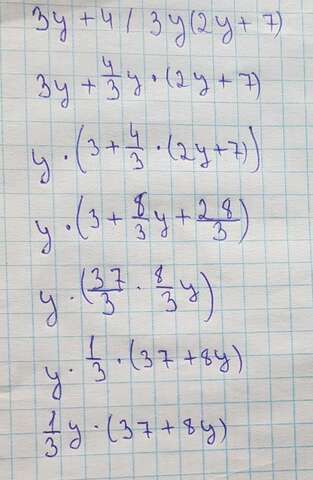 3y + 4 / 3y(2y + 7)
3y + 4/3 y · (2y + 7)
y · (3 + 4/3 · (2y + 7))
y · (3 + 8/3 y + 28/3)
y · (37/3 · 8/3 y)
y · 1/3 · (37 + 8y)
1/3 y · (37 + 8y)